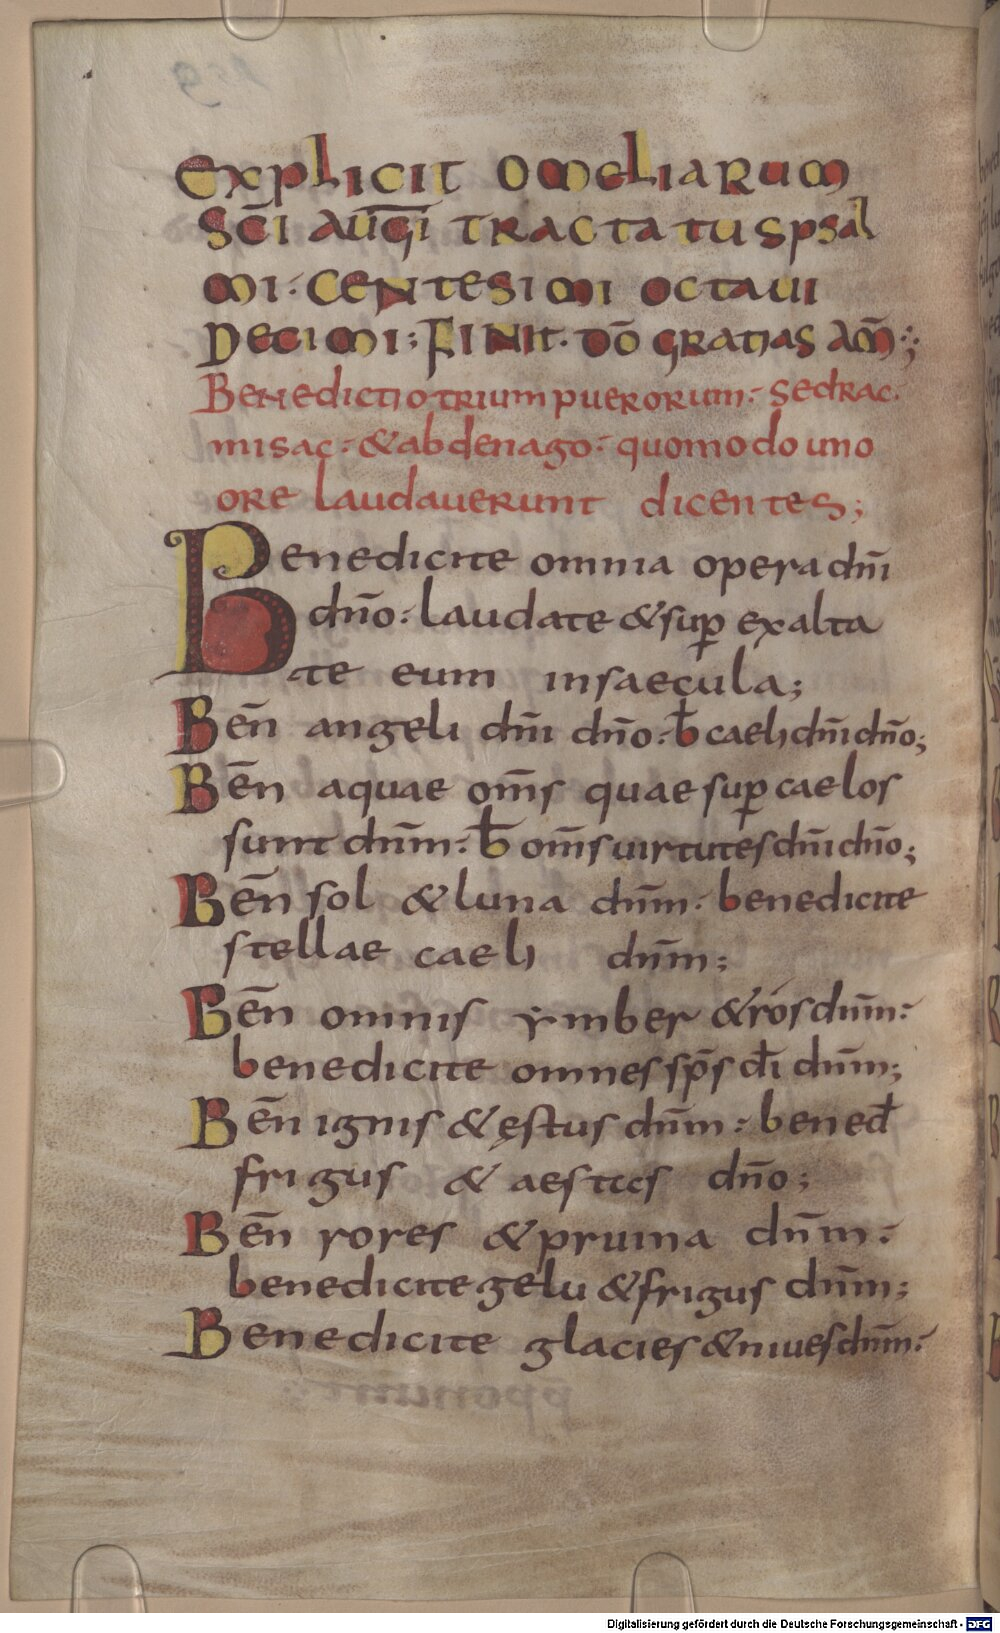 explicit omeliarum
sc̄i auḡi tractatus psal
mi. centesimi octaui
decimi; finit. dō gratias am̄:;
Benedictio trium puerorum:- sedrac.
misac:- & abdenago:- quomodo uno
ore laudauerunt dicentes;
Benedicite omnia opera dn̄i
dn̄o:- laudate & sup̱ exalta
te eum insaecula;
Ben̄ angeli dn̄i dn̄o:- b̄ caeli dn̄i dn̄o;
Ben̄ aquae om̄s quae sup̱ caelos
sunt dn̄m:- b̄ om̄s uirtutes dn̄i dn̄o;
Ben̄ sol & luna dn̄m. benedicite
stellae caeli dn̄m;
Ben̄ omnis ymber & ros dn̄m:
benedicite omnes sp̄s d̄i dn̄m;
Ben̄ ignis & ęstus dn̄m: bened̄
frigus & aestus dn̄o;
Ben̄ rores & pruina dn̄m:
benedicite gelu & frigus dn̄m;
Benedicite glacies & niues dn̄m:
Digitalisierung gefördert durch die Deutsche Forschungsgemeinschaft - DFG